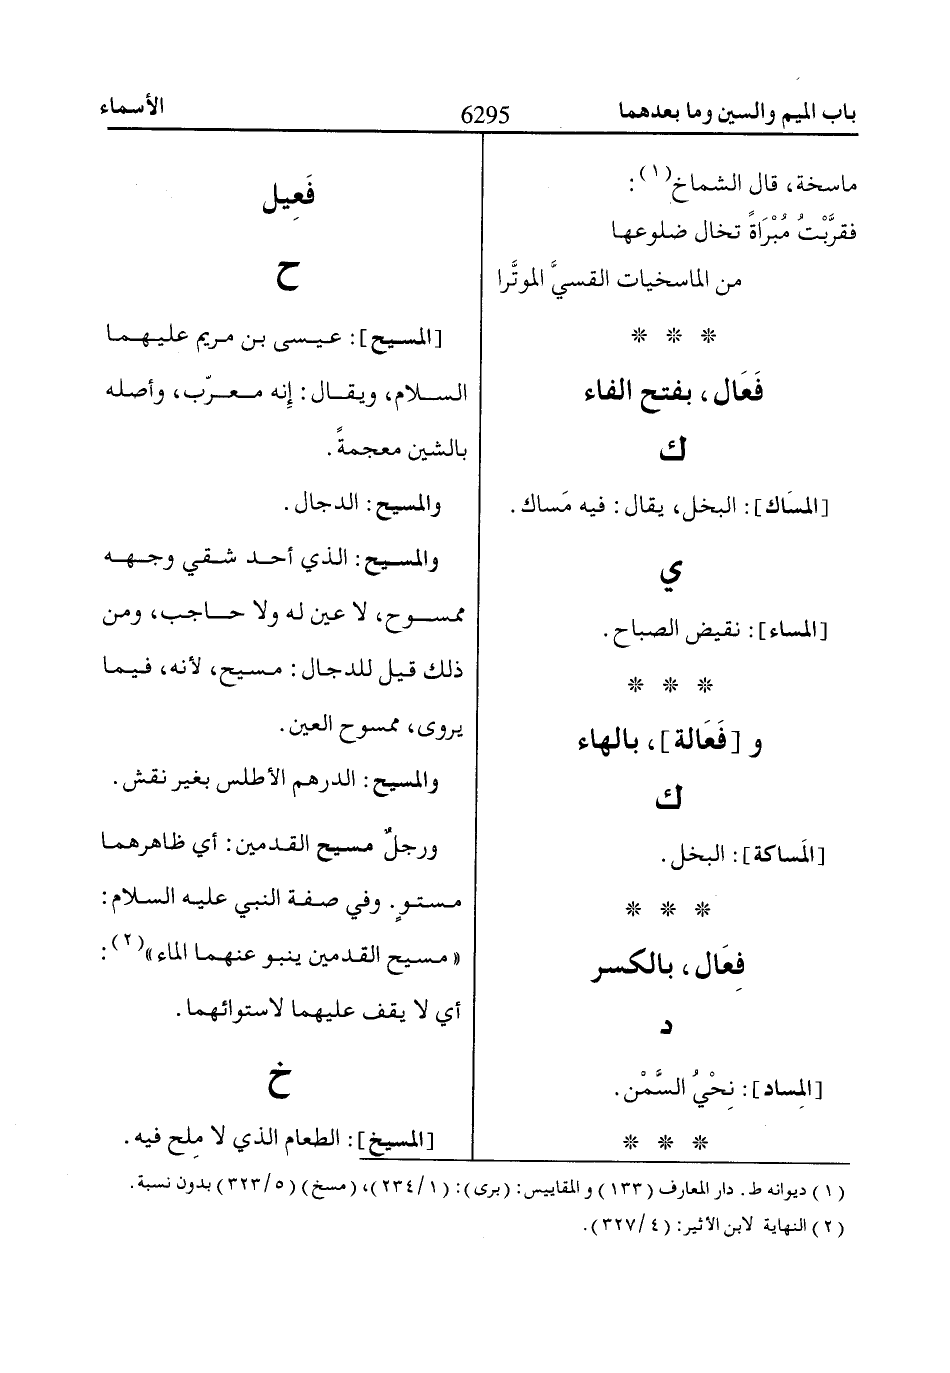 باب الميم والسين وما بعدهما
6295
الأسماء
ماسخة، قال الشماخ(١):
فقرَّبْتُ مُبْرَاةً تخال ضلوعها
من الماسخيات القسيَّ الموتَّرا
* * *
فَعَال، بفتح الفاء
ك
[المسَاك]: البخل، يقال: فيه مَساك.
ي
[المساء]: نقيض الصباح.
* * *
و [فَعَالة]، بالهاء
ك
[المَساكة]: البخل.
* * *
فِعَال، بالكسر
د
[المِساد]: نِحْيُ السَّمْن.
* * *
فَعِيل
ح
[المسيح]: عيسى بن مريم عليهما
السلام، ويقال: إنه معرّب، وأصله
بالشين معجمةً.
والمسيح: الدجال.
والمسيح: الذي أحد شقي وجهه
ممسوح، لا عين له ولا حاجب، ومن
ذلك قيل للدجال: مسيح، لأنه، فيما
يروى، ممسوح العين.
والمسيح: الدرهم الأطلس بغير نقش.
ورجلٌ مسيح القدمين: أي ظاهرهما
مستوٍ. وفي صفة النبي عليه السلام:
«مسيح القدمين ينبو عنهما الماء»(٢):
أي لا يقف عليهما لاستوائهما.
خ
[المسيخ]: الطعام الذي لا مِلح فيه.
(١) ديوانه ط. دار المعارف (١٣٣) و المقاييس: (برى): (١/ ٢٣٤)، (مسخ) (٥/ ٣٢٣) بدون نسبة.
(٢) النهاية لابن الأثير: (٤/ ٣٢٧).